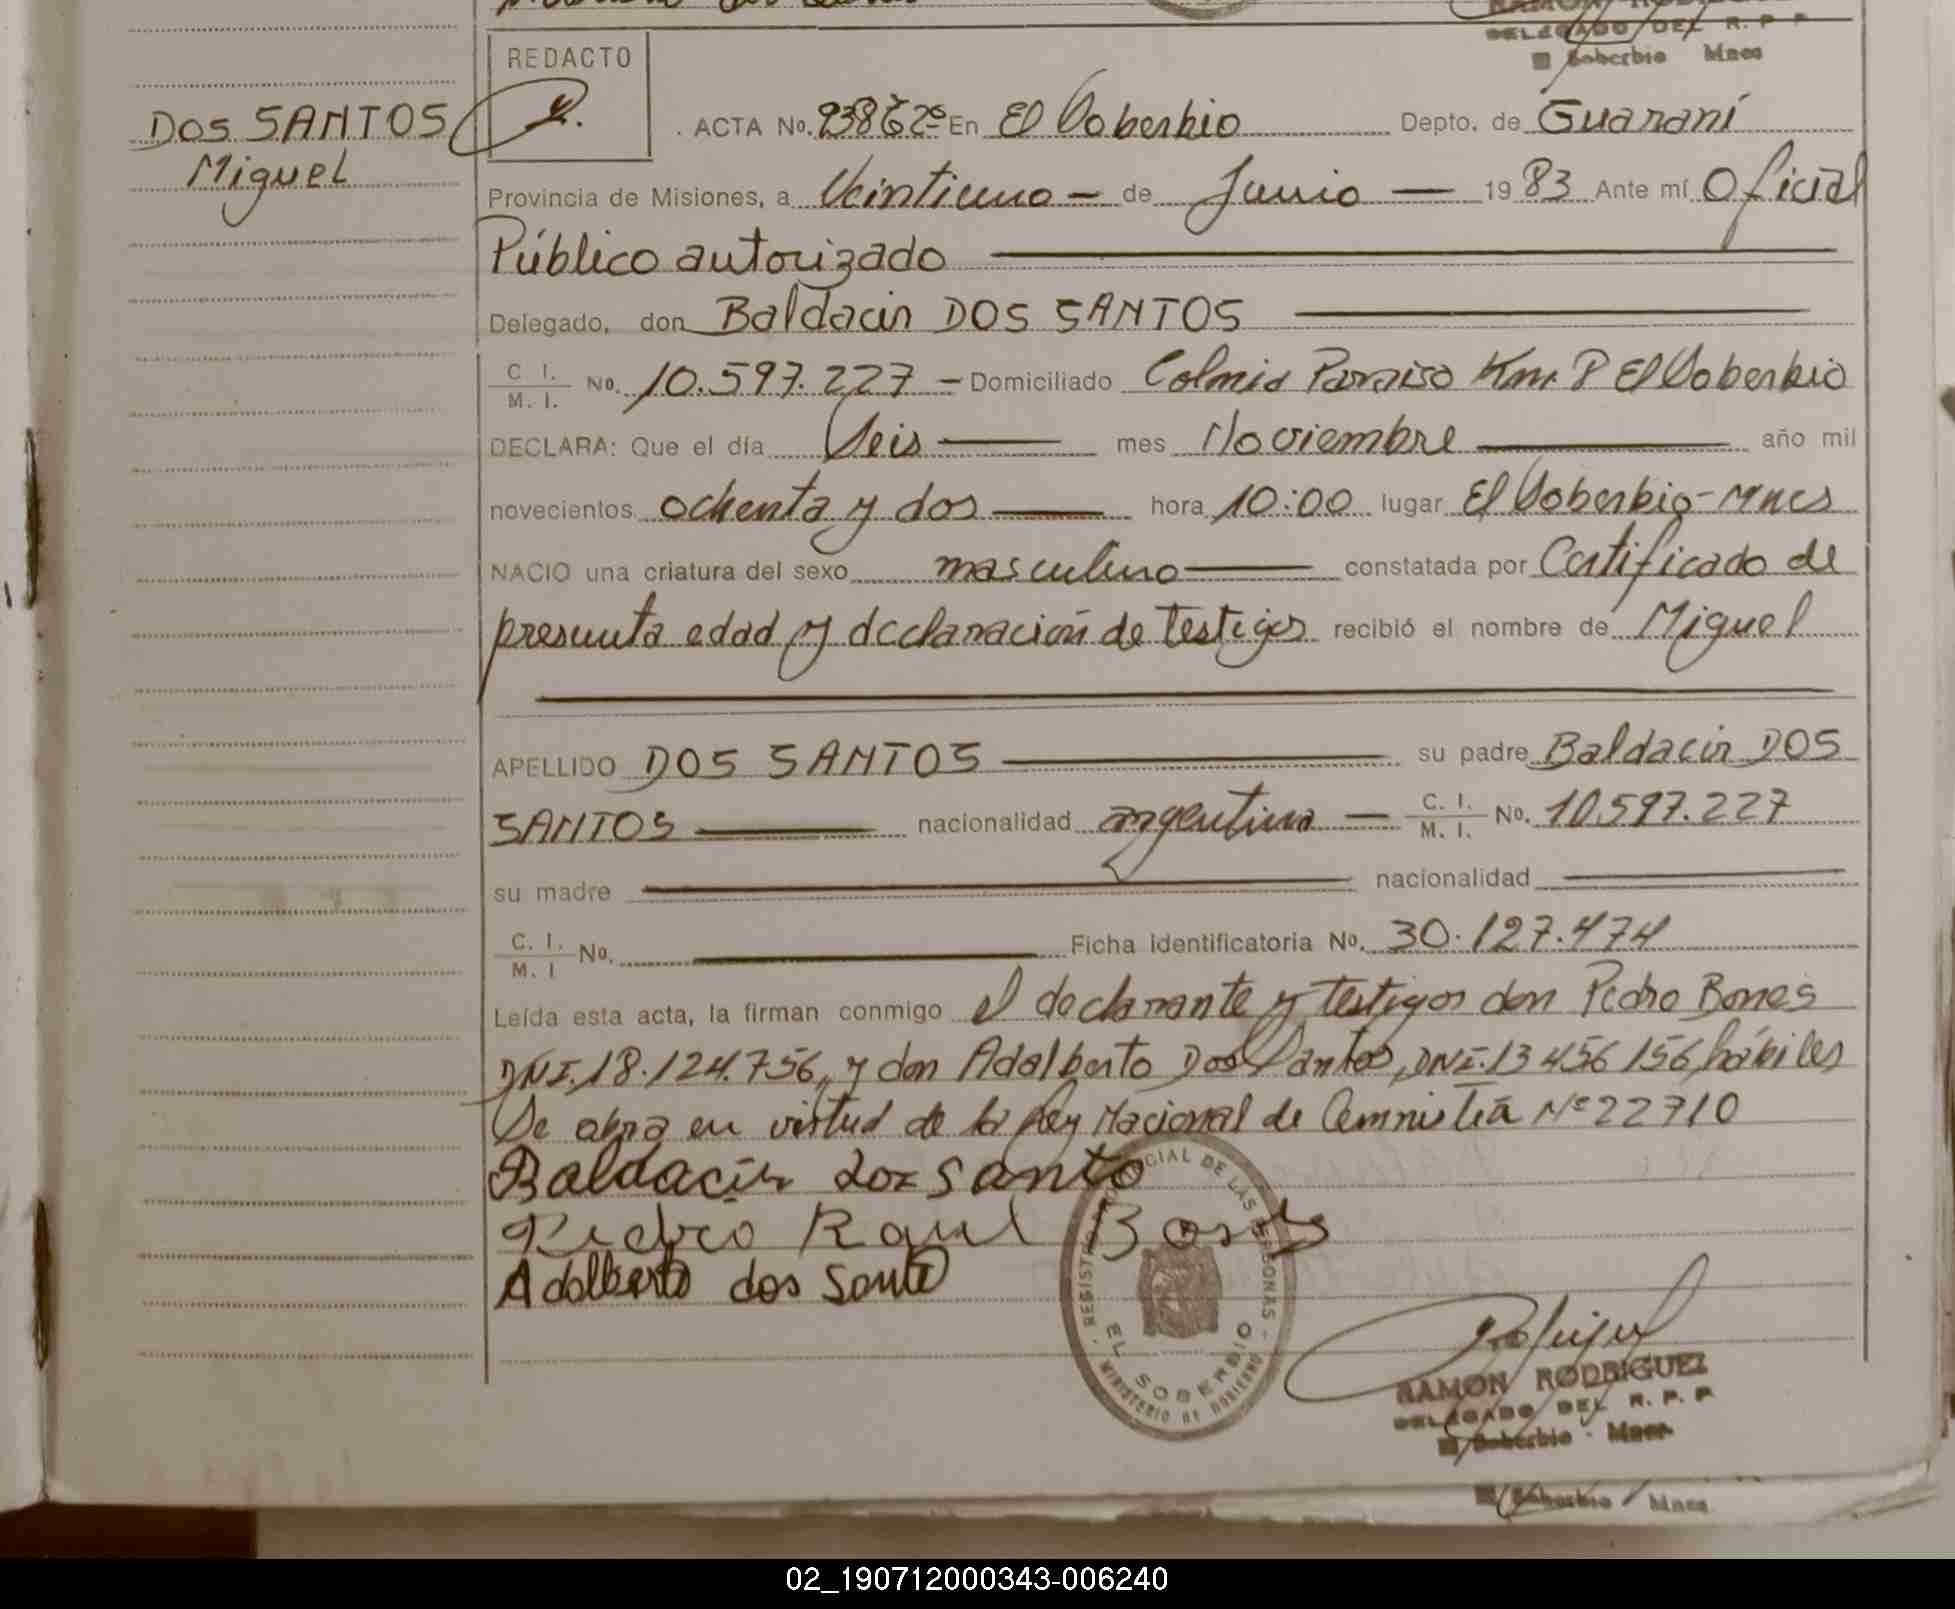 RAMON RODRIGUEZ
DELEGADO DEL R. P. P
El Soberbio Mnes
REDACTO
DOS SANTOS
Miguel
ACTA No. 938 Tº 2º En El Soberbio Depto. de Guaraní
Provincia de Misiones, a Veintiuno - de Junio - 1983 Ante mí Oficial
Público autorizado
Delegado, don Baldacir DOS SANTOS
C. I. M. I. No. 10.597.227 - Domiciliado Colonia Paraiso Km. 8 El Soberbio
DECLARA: Que el día Seis mes Noviembre año mil
novecientos ochenta y dos hora 10:00 lugar El Soberbio-Mnes
NACIO una criatura del sexo masculino constatada por Certificado de
presunta edad y declaración de testigos recibió el nombre de Miguel
APELLIDO DOS SANTOS su padre Baldacir DOS
SANTOS nacionalidad argentina - C. I. M. I. No. 10.597.227
su madre nacionalidad
C. I. M. I No. Ficha Identificatoria No. 30.127.474
Leída esta acta, la firman conmigo el declarante y testigos don Pedro Bones
DNI.18.124.756, y don Adalberto Dos Santos, DNI.13 456 156, hábiles
Se abra en virtud de la Ley Nacional de Amnistía Nº 22710
Baldacir dos santo
Pedro Raul
Adalberto dos Santo
REGISTRO PROVINCIAL DE LAS PERSONAS
EL SOBERBIO
MINISTERIO DE GOBIERNO
RAMON RODRIGUEZ
DELEGADO DEL R. P. P
El Soberbio - Mnes
El Soberbio Mnes
02_190712000343-006240